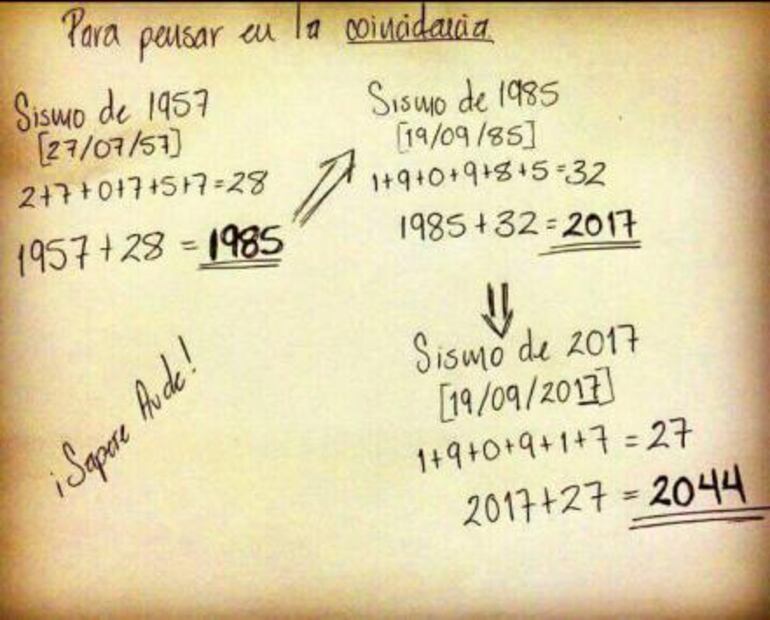 Para pensar en la coincidencia
Sismo de 1957
[27/07/57]
2+7+0+7+5+7=28
1957+28 = 1985
Sismo de 1985
[19/09/85]
1+9+0+9+8+5=32
1985+32=2017
Sismo de 2017
[19/09/2017]
1+9+0+9+1+7=27
2017+27=2044
¡Sapere Aude!